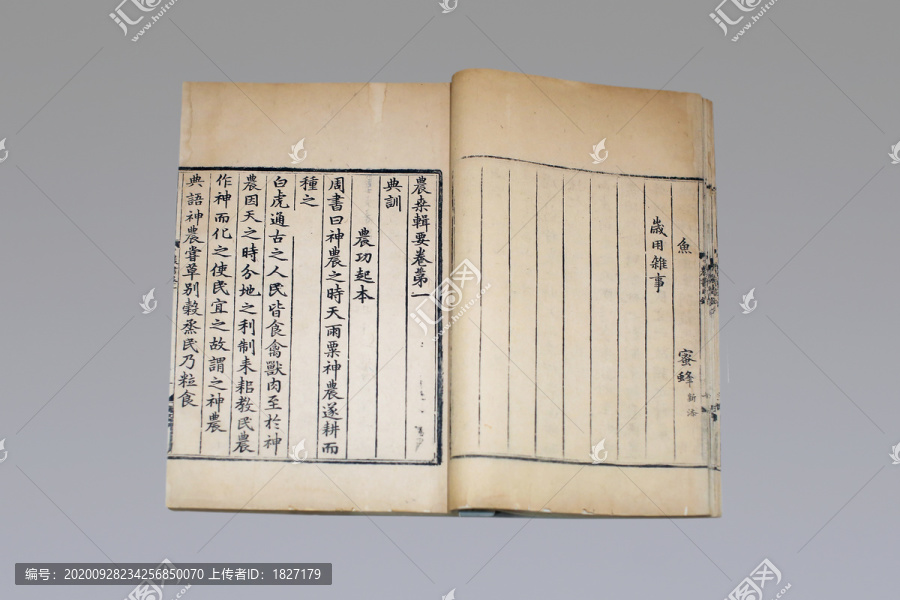 魚 蜜蜂 新添
歲用雜事
農桑輯要卷第一
典訓
農功起本
周書曰神農之時天雨粟神農遂耕而
種之
白虎通古之人民皆食禽獸肉至於神
農因天之時分地之利制耒耜教民農
作神而化之使民宜之故謂之神農
典語神農嘗草別穀烝民乃粒食
汇图网
www.huitu.com
编号：20200928234256850070 上传者ID：1827179